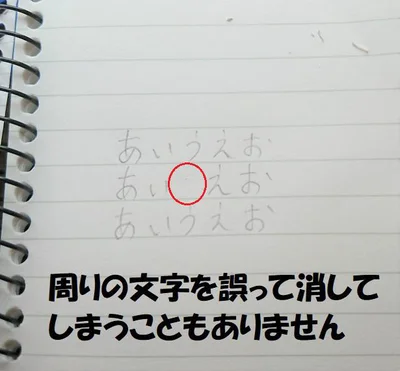 あいうえお
あい えお
あいうえお
周りの文字を誤って消して
しまうこともありません